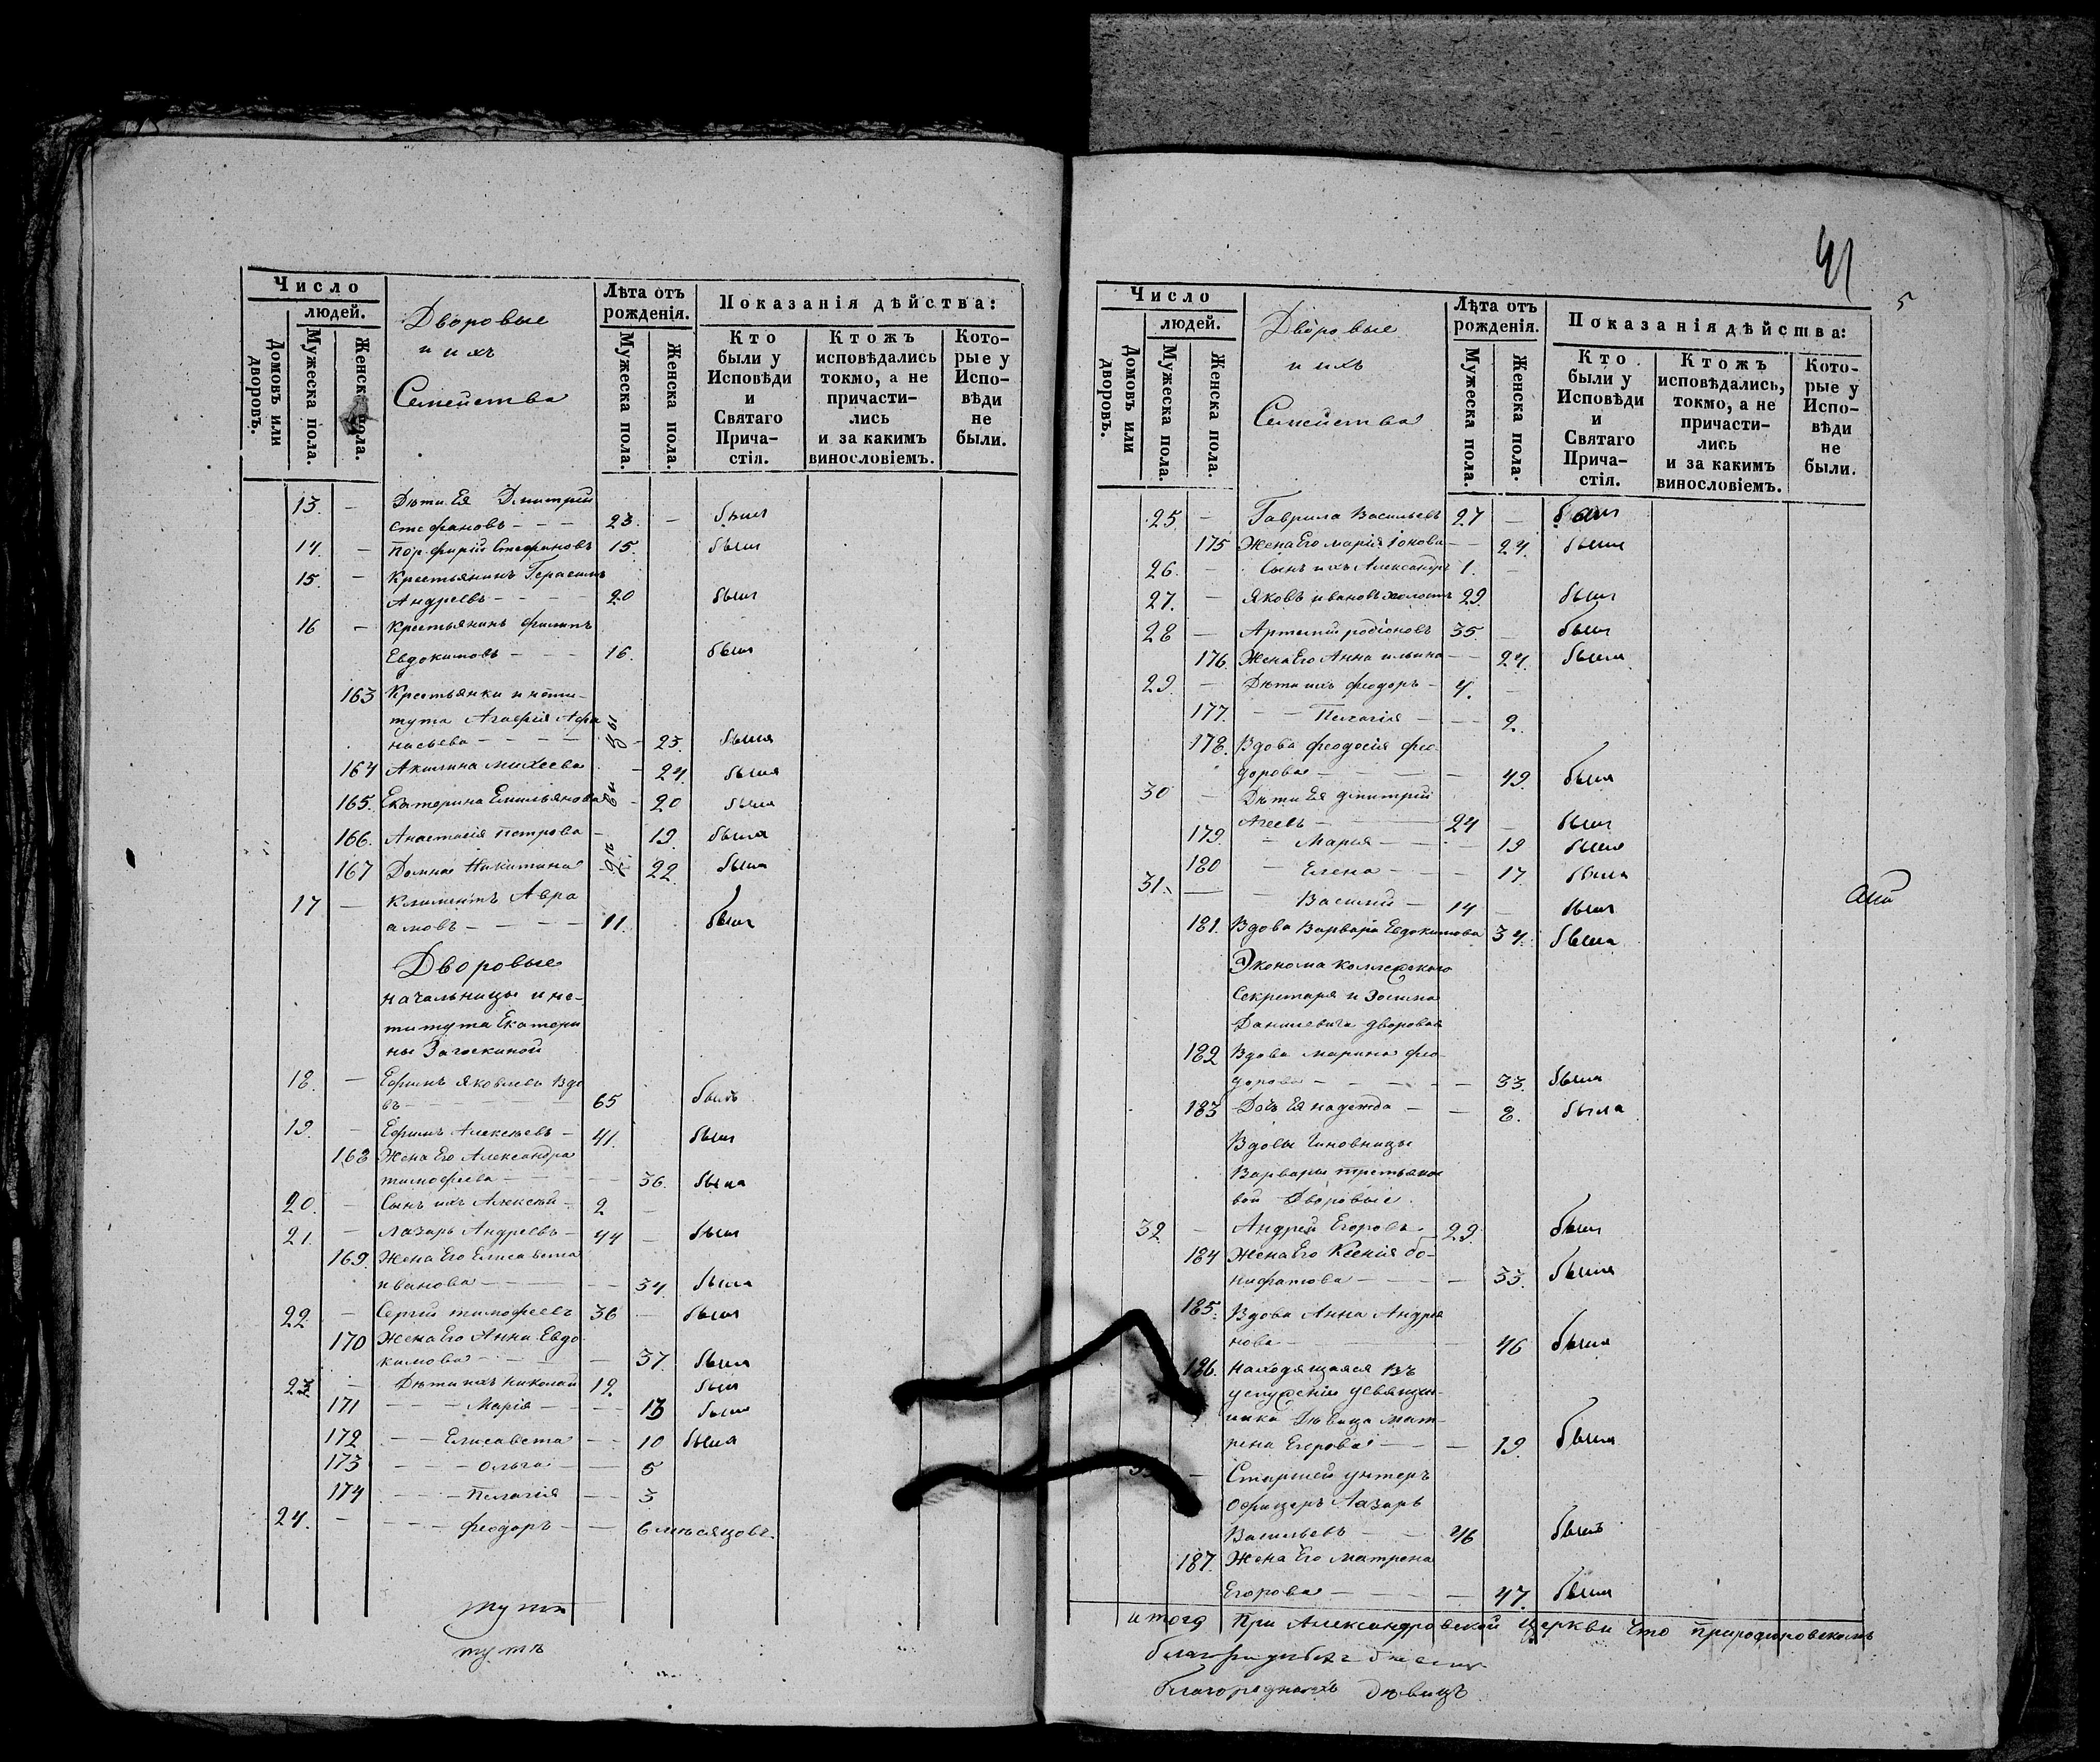 Число
людей.
Домовъ или дворовъ.
Мужеска пола.
Женска пола.
Дворовые
и ихъ
Семейства
Лѣта отъ рожденія.
Мужеска пола.
Женска пола.
Показанія дѣйства:
Кто были у Исповѣди и Святаго Причастія.
Ктожъ исповѣдались токмо, а не причастились и за какимъ винословіемъ.
Которые у Исповѣди не были.
13. — Дѣти Ея Дмитрій
Стефановъ — — — 23. — былъ
14. — Порфирій Стефановъ 15. былъ
15 — Крестьянинъ Герасимъ
Андреевъ — — — 20 былъ
16 — Крестьянинъ Филипъ
Евдокимовъ — — — 16. былъ
163 Крестьянки инсти-
тута Агафія Афа
насьева — — — 23. была
164 Акилина Михеева — 24. была
165. Екатерина Емильянова — 20 была
166. Анастасія Петрова — 19. была
167 Домна Никитина 22. была
17 — Климентъ Авра
амовъ — — — — 11. былъ
Дворовые
начальницы инс-
титута Екатери
ны Загоскиной
18. — Ефимъ Яковлевъ вдо
въ — — — 65 былъ
19. — Ефимъ Алексѣевъ — 41. былъ
168 Жена Его Александра
Тимофеева — — — 36. была
20. — Сынъ ихъ Алексѣй — 2 —
21. — Лазарь Андреевъ — 44 — былъ
169. Жена Его Елисавета
Иванова — — — — 34. была
22. — Сергій Тимофеевъ 36 — былъ
170 Жена Его Анна Евдо
кимова — — — 37. была
23. — Дѣти ихъ Николай 12. былъ
171 — — — Марія — — — 13 была
172 — — Елисавета — — 10 была
173 — — — Ольга — — 5
174 — — — Пелагія — — 3
24. — — — — Феодоръ — — 6 мѣсяцовъ.
тутъ
тутъ
41
5
Число
людей.
Домовъ или дворовъ.
Мужеска пола.
Женска пола.
Дворовые
и ихъ
Семейства
Лѣта отъ рожденія.
Мужеска пола.
Женска пола.
Показанія дѣйства:
Кто были у Исповѣди и Святаго Причастія.
Ктожъ исповѣдались, токмо, а не причастились и за какимъ винословіемъ.
Которые у Исповѣди не были.
25. — Гаврила Васильевъ 27 — былъ
175 Жена Его Марія Іонова — — 24. была
26. — Сынъ ихъ Александръ 1. —
27. — Яковъ Ивановъ холостъ 29. былъ
28 — Артемій Родіоновъ 35. — былъ
176. Жена Его Анна Ильина — — 24. была
29. — Дѣти ихъ Феодоръ — 4. —
177. — — Пелагія — — — 2.
178. Вдова Феодосія Фео-
дорова — — — — 49. была
30 — Дѣти Ея Дмитрій
Агеевъ — — — 24 — былъ
179. — Марія — — — 19 была
180 — Елена — — — 17. была
31. — — Василій — 14 — былъ
181. Вдова Варвара Евдокимова 34. была
Эконома Коллежскаго
Секретаря и Зосима
Данилевича дворовая
182 Вдова Марина Фео-
дорова — — — — — 33. была
183 Дочь Ея Надежда — — 8. была
Вдовы Чиновницы
Варвары Третьяко
вой Дворовые
32 — Андрей Егоровъ — 29. былъ
184 Жена Его Ксенія Бо-
нифатова — — — — 33. была
185. Вдова Анна Андрія
нова — — — 46 была
186. Находящаяся въ
услуженіи у священ-
ника Дѣвица Мат-
рена Егорова — — — 19. была
— Старшей унтеръ
офицеръ Лазарь
Васильевъ — — 46 былъ
187. Жена Его Матрена
Егорова — — — — 47. была
итого При Александровской церкви что при
благородныхъ дѣвицъ